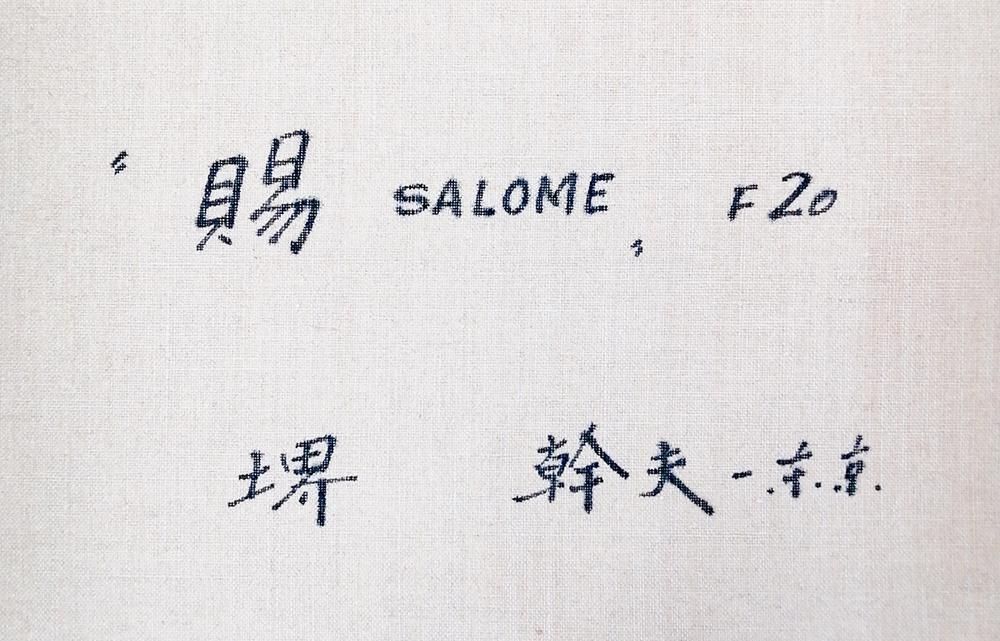 〝賜 SALOME〟 F20
堺 幹夫-东京